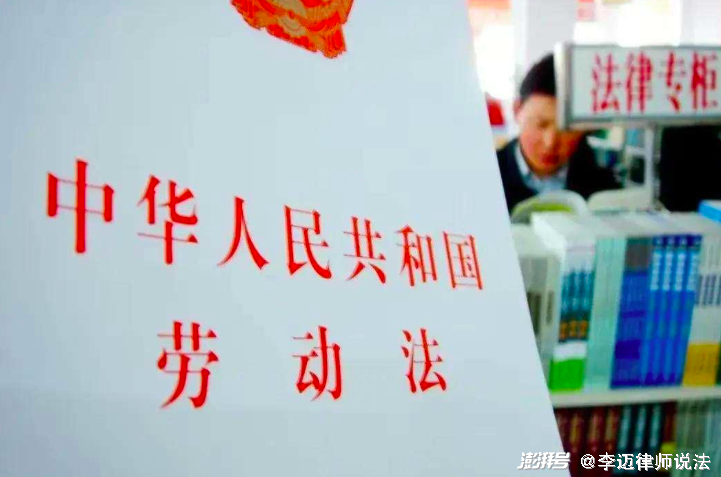 中华人民共和国
劳动法
法律专柜
澎湃号 @李迈律师说法